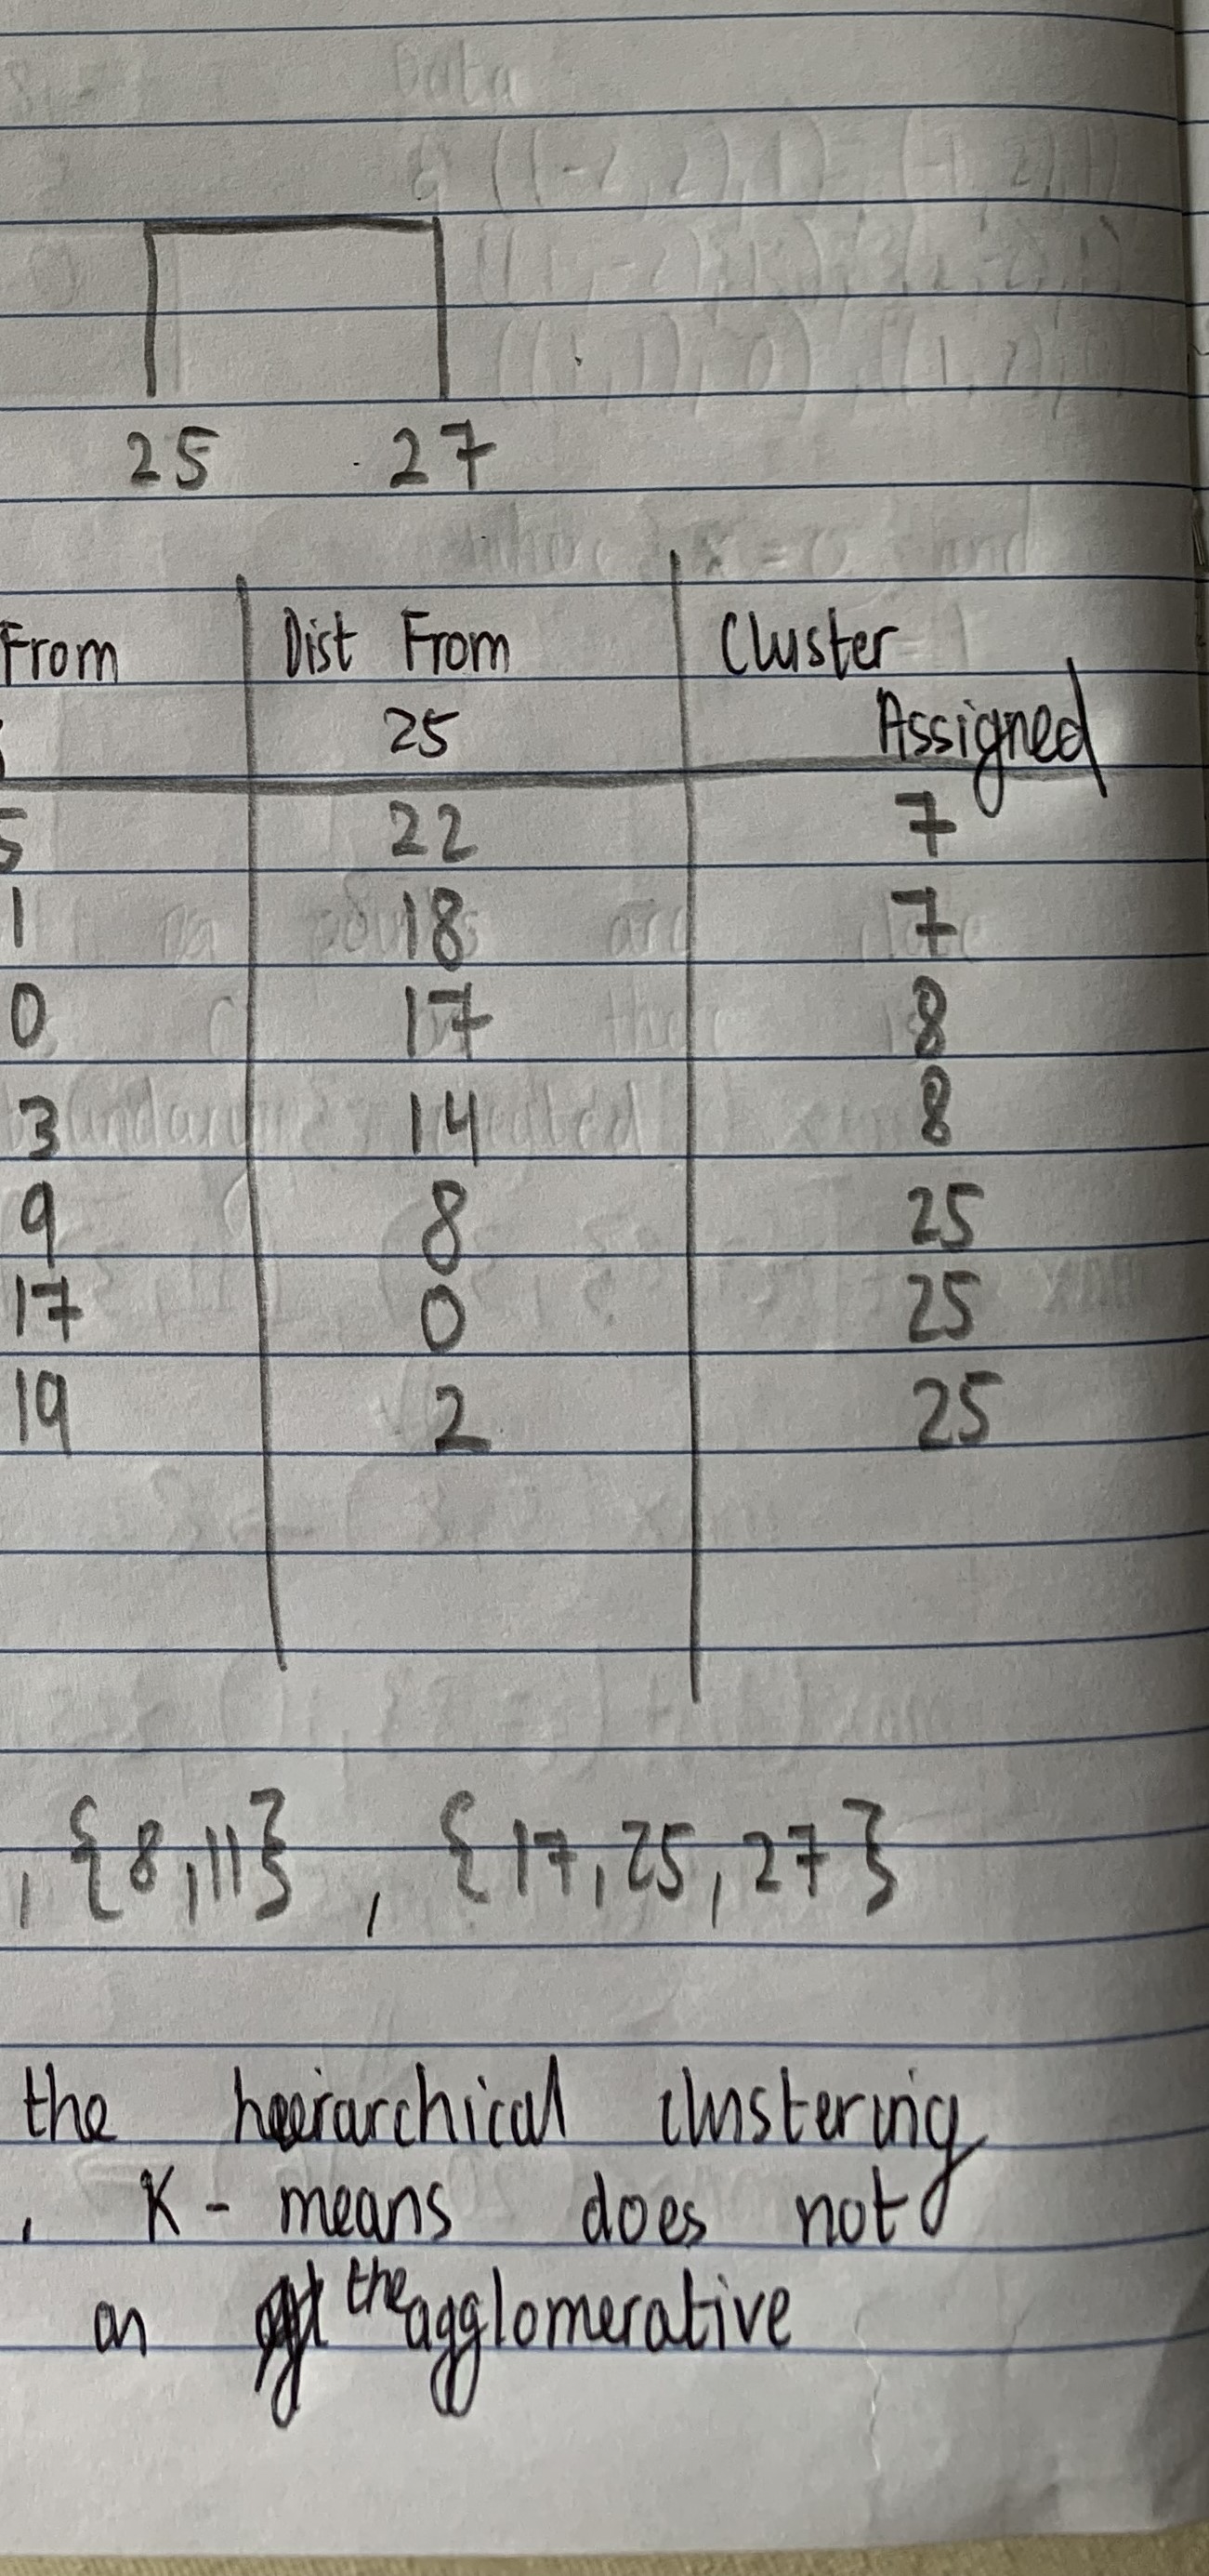 25 27
From Dist From Cluster
25 Assigned
5 22 7
1 18 7
0 17 8
3 14 8
9 8 25
17 0 25
19 2 25
, {8,11} , {17,25,27}
the heirarchical clustering
. K - means does not
on the agglomerative